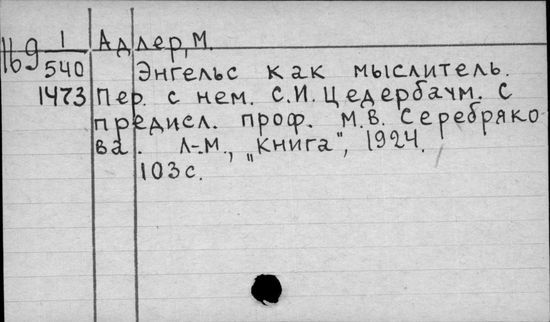 169 1/540 Адлер, М.
Энгельс как мыслитель.
1473 Пер. с нем. С.И. Цедербаум. С
предисл. проф. М.В. Серебряко
ва. Л-М., „Книга", 1924.
103 с.